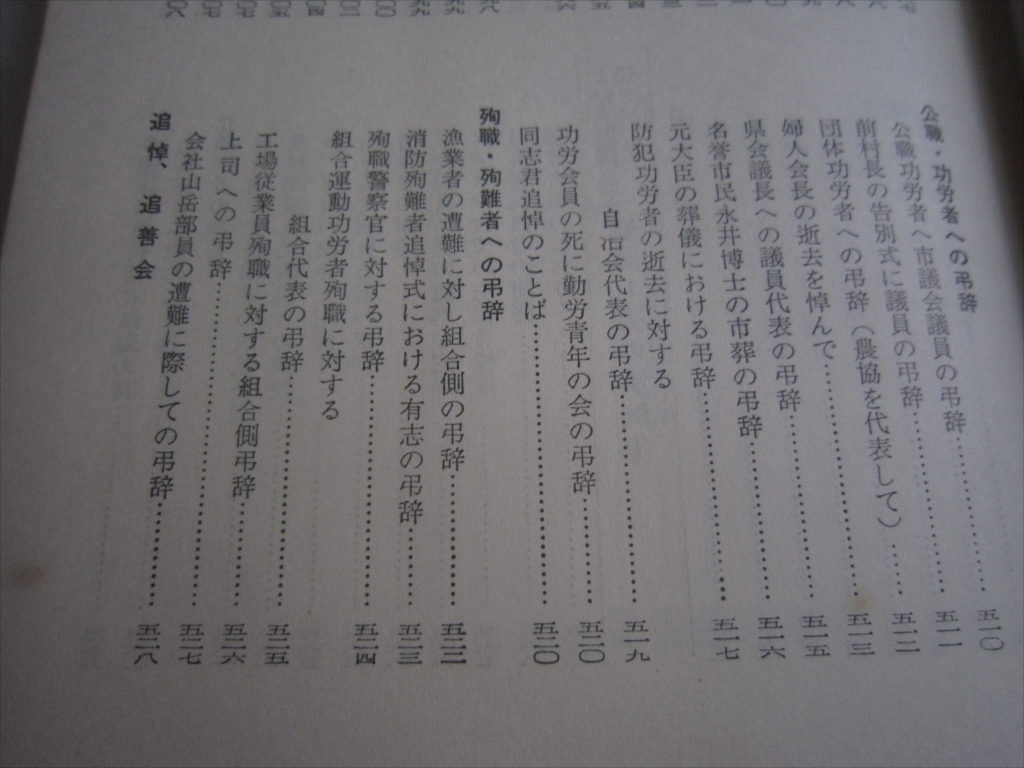 公職・功労者への弔辞
公職功労者へ市議会議員の弔辞…………五一〇
前村長の告別式に議員の弔辞…………五一一
団体功労者への弔辞（農協を代表して）……五一二
婦人会長の逝去を悼んで…………五一三
県会議長への議員代表の弔辞…………五一五
名誉市民永井博士の市葬の弔辞…………五一六
元大臣の葬儀における弔辞…………五一七
防犯功労者の逝去に対する
自治会代表の弔辞…………五一九
功労会員の死に勤労青年の会の弔辞…………五二〇
同志君追悼のことば…………五二〇
殉職・殉難者への弔辞
漁業者の遭難に対し組合側の弔辞…………五二二
消防殉難者追悼式における有志の弔辞………五二三
殉職警察官に対する弔辞…………五二四
組合運動功労者殉職に対する
組合代表の弔辞…………五二五
工場従業員殉職に対する組合側弔辞…………五二六
上司への弔辞…………五二七
会社山岳部員の遭難に際しての弔辞…………五二八
追悼、追善会